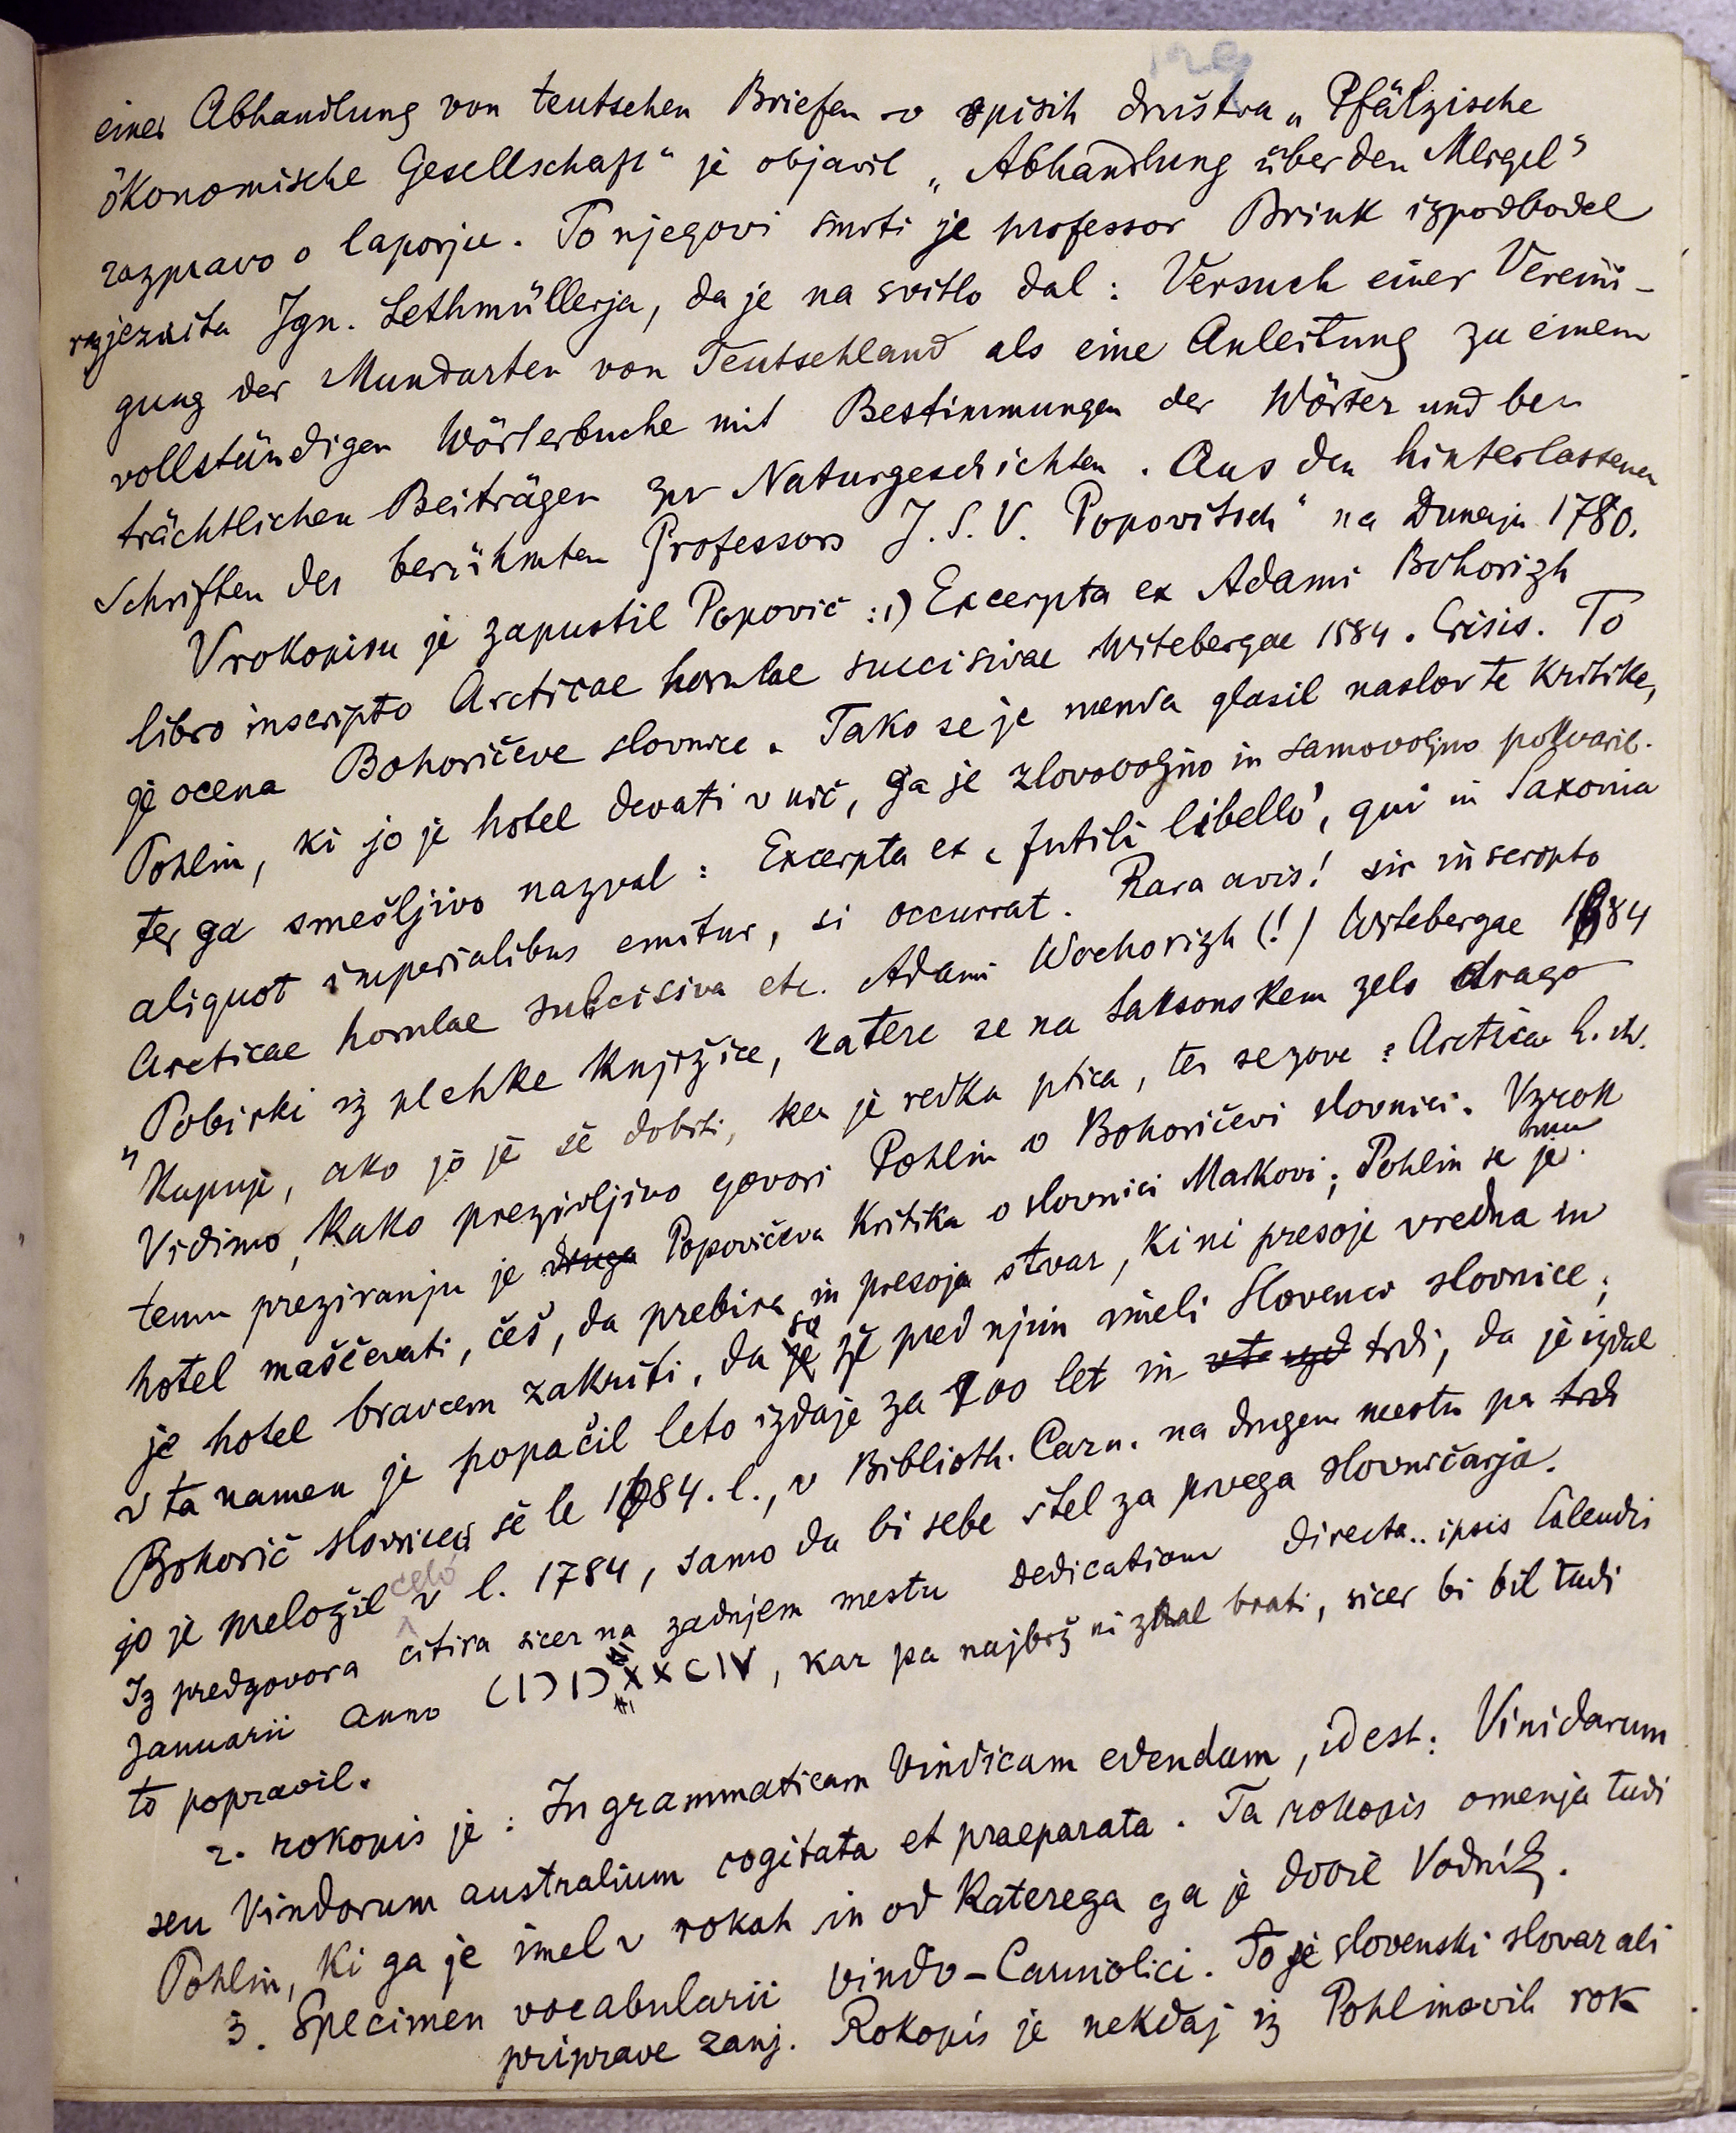 einer Abhandlung von teutschen Briefen v spisih društva „Pfälzische
ökonomische Gesellschaft“ je objavil „Abhandlung über den Mergel“
razpravo o laporju. Po njegovi smrti je professor Brink izpodbodel
razjezuita Ign. Lethmüllerja, da je na svitlo dal: Versuch einer Vereini-
gung der Mundarten von Teutschland als eine Anleitung zu einem
vollständigen Wörterbuche mit Bestimmungen der Wörter und be
trächtlichen Beiträgen zur Naturgeschichten. Aus den hinterlassenen
Schriften des berühmten Professors J. S. V. Popovitsch“ na Dunaju 1780.
V rokopisu je zapustil Popovič: 1) Excerpta ex Adami Bohorizh
libro inscripto Arcticae horulae succisivae Witebergae 1584. Crisis. To
je ocena Bohoričeve slovnice. Tako se je menda glasil naslov te kritike,
Pohlin, ki jo je hotel devati v nič, ga je zlovoljno in samovoljno pokvaril.
ter ga smešljivo nazval: Excerpta ex „futili libello“, qui in Saxonia
aliquot imperialibus emitur, si occurrat. Rara avis! sic inscripto
Arcticae horulae subcisiva etc. Adami Wochorizh (!) Witebergae 1684
„Pobirki iz plehke knjižice, katere se na Saksonskem zelo drago
kupuje, ako jo je še dobiti, ker je redka ptica, ter se zove: Arcticae h. itd.
Vidimo, kako prezirljivo govori Pohlin o Bohoričevi slovnici. Vzrok
temu preziranju je druga Popovičeva kritika o slovnici Markovi; Pohlin se je mu
hotel maščevati, češ, da prebira in presoja stvar, ki ni presoje vredna in
je hotel bravcem zakriti, da je so že pred njim imeli Slovenci slovnice;
v ta namen je popačil leto izdaje za 100 let in trdi, da je izdal
Bohorič slovnico še le 1684. l., v Biblioth. Carn. na drugem mestu pa trdi
jo je preložil celo v l. 1784, samo da bi sebe štel za prvega slovničarja.
Iz predgovora citira sicer na zadnjem mestu dedicationi directa.. ipsis Calendis
Januarii anno CIƆ IƆ XXCIV, kar pa najbrž ni znal brati, sicer bi bil tudi
to popravil.
2. rokopis je: In grammaticam Vindicam edendam, id est: Vinidarum
seu Vindorum australium cogitata et praeparata. Ta rokopis omenja tudi
Pohlin, ki ga je imel v rokah in od katerega ga je dobil Vodnik.
3. Specimen vocabularii vindo-Carniolici. To je slovenski slovar ali
priprave zanj. Rokopis je nekdaj iz Pohlinovih rok